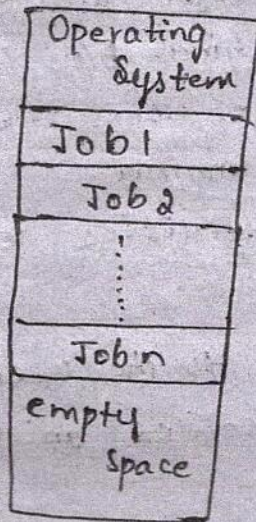 Operating
System
Job 1
Job 2
Job n
empty
Space